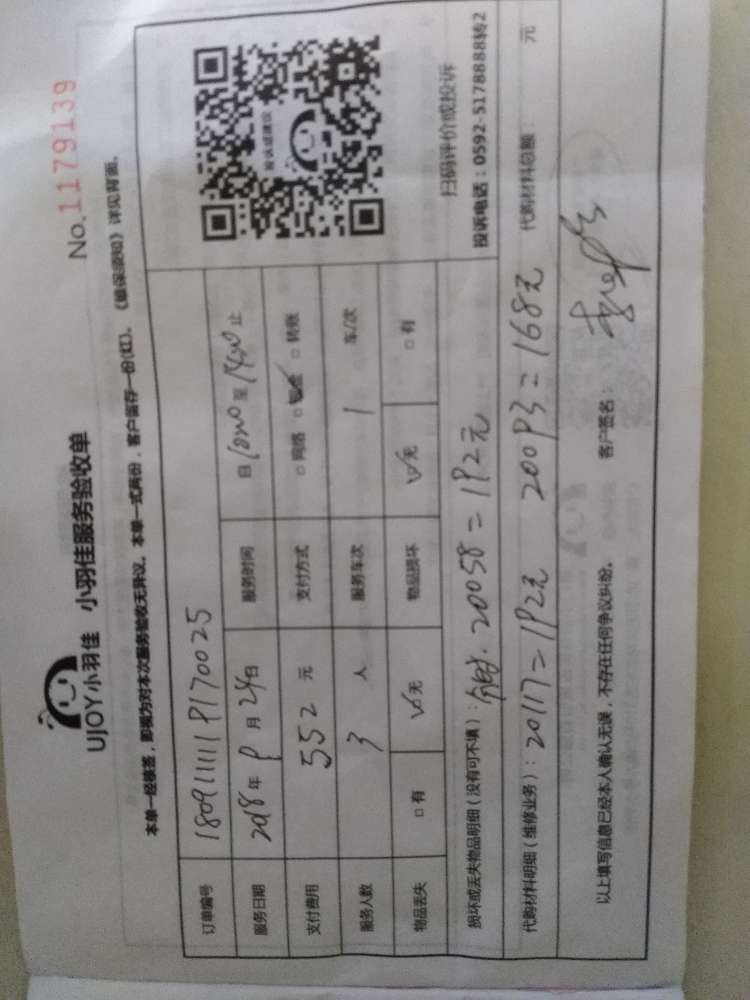 No.1179139
UJOY小羽佳 小羽佳服务验收单
本单一经接签，即视为对本次服务验收无异议。本单一式两份，客户留存一份(红)。《担保须知》详见背面。
订单编号
服务日期 2018年9月24日 服务时间 自 至 止
支付费用 552元 支付方式 □网络 □现金 □转账
服务人数 3人 服务车次 1 车/次
物品丢失 □有 ☑无 物品损坏 ☑无 □有
投诉或建议
扫码评价或投诉
投诉电话：0592-5178888转2
损坏或丢失物品明细（没有可不填）： 20058=192元
代购材料明细（维修业务）：20117=192元 20093=168元 代购材料总额： 元
以上填写信息已经本人确认无误，不存在任何争议纠纷。 客户签名：